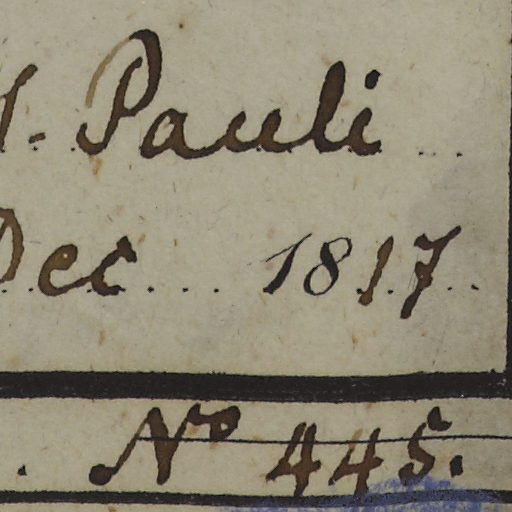 Pauli
Dec 1817
No 445.